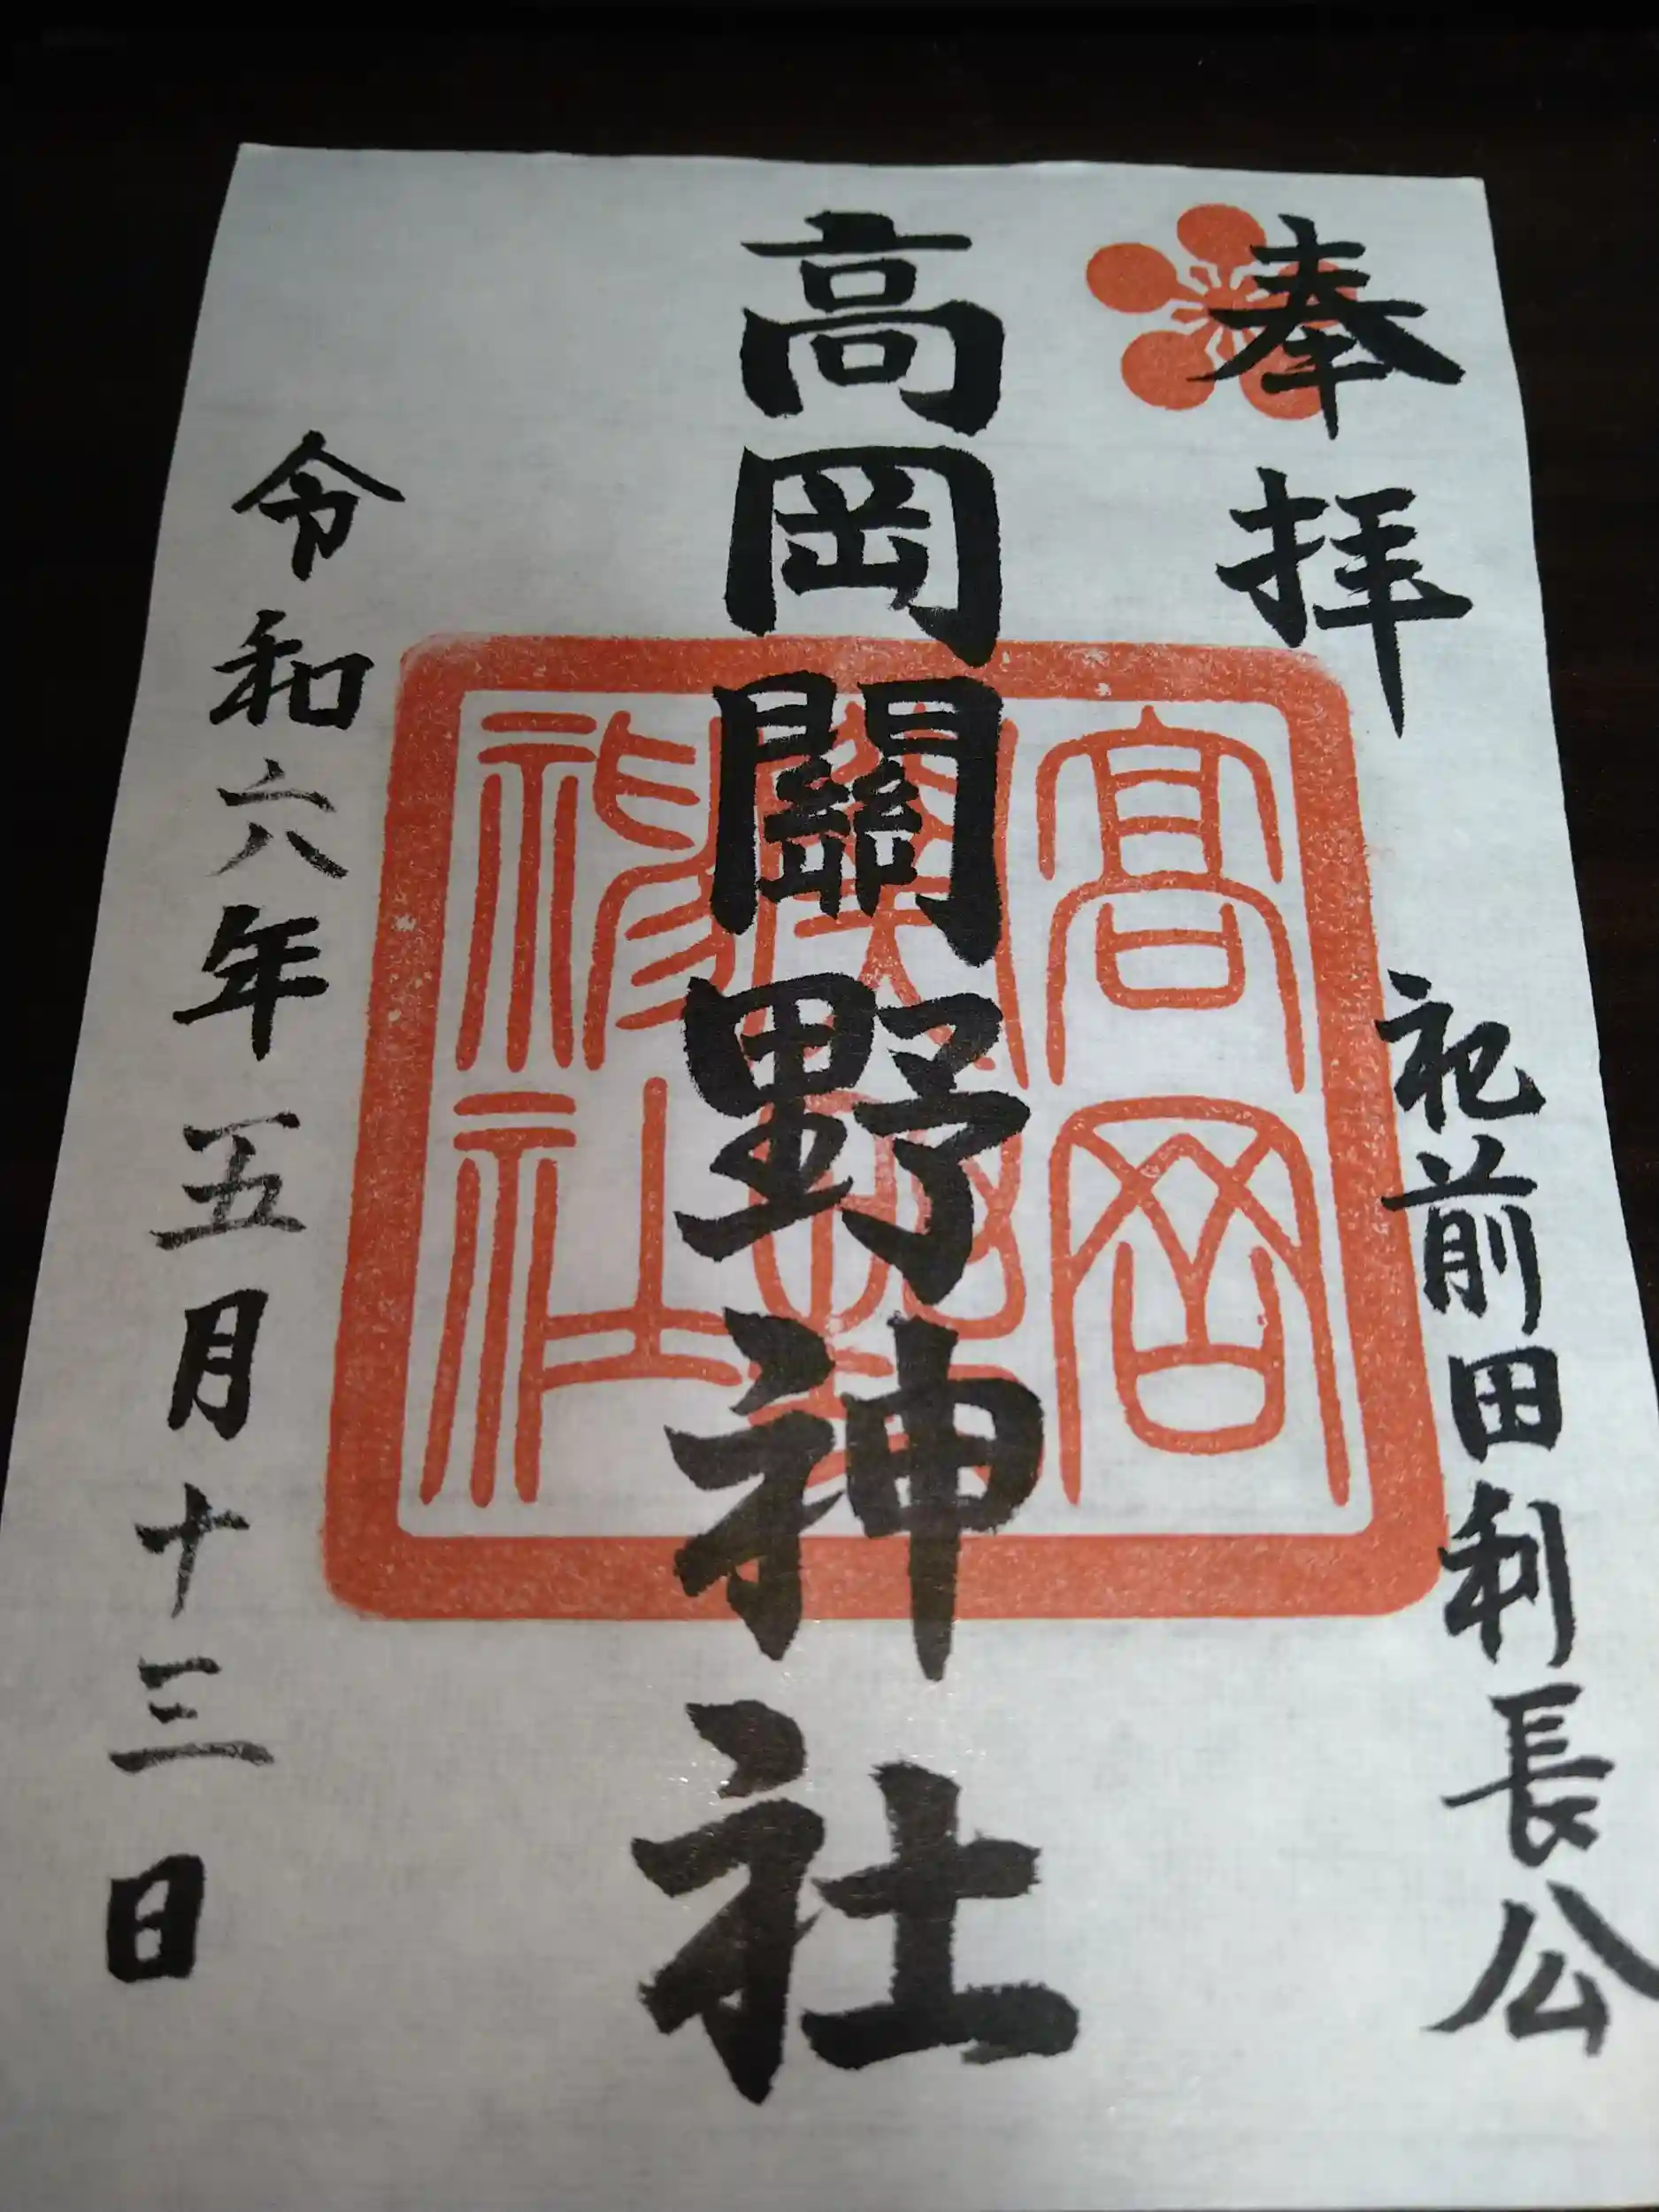 奉拝
祀前田利長公
高岡關野神社
高岡關野神社
令和六年五月十三日